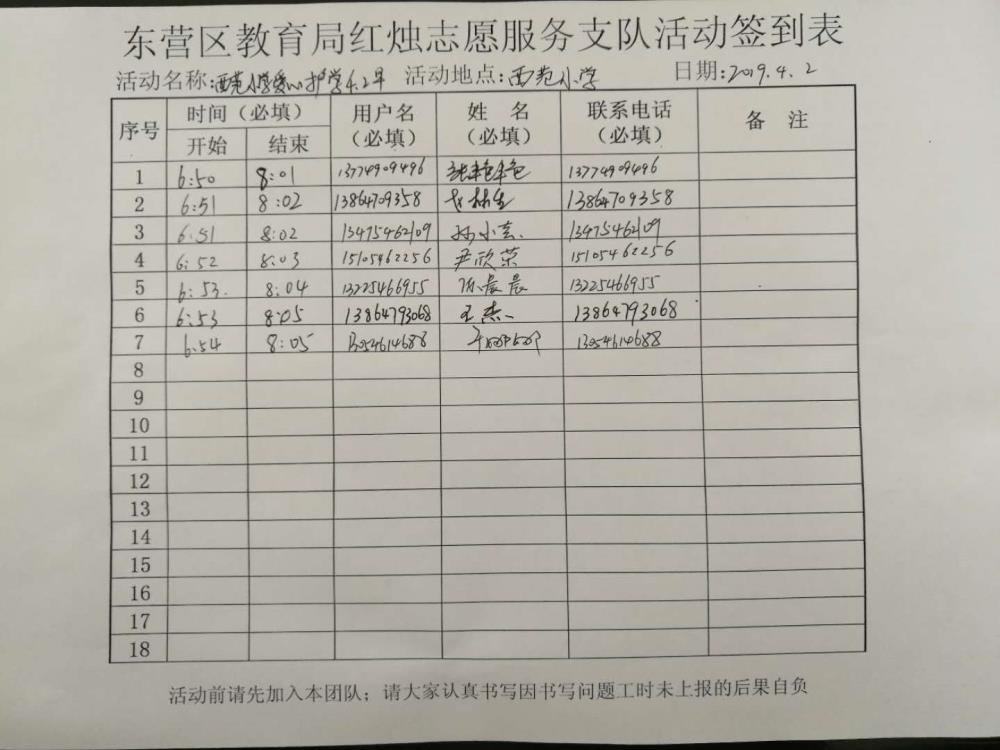 东营区教育局红烛志愿服务支队活动签到表
活动名称:西苑小学爱心护学4.2早 活动地点:西苑小学 日期:2019.4.2
序号 时间（必填） 用户名（必填） 姓 名（必填） 联系电话（必填） 备 注
开始 结束
1 6:50 8:01 13774909496 13774909496
2 6:51 8:02 13864709358 13864709358
3 6:51 8:02 13475462109 孙小芸 13475462109
4 6:52 8:03 15105462256 尹欣荣 15105462256
5 6:53 8:04 13225466955 陈晨晨 13225466955
6 6:53 8:05 13864793068 王杰 13864793068
7 6:54 8:05 13054614688 13054614688
8
9
10
11
12
13
14
15
16
17
18
活动前请先加入本团队；请大家认真书写因书写问题工时未上报的后果自负